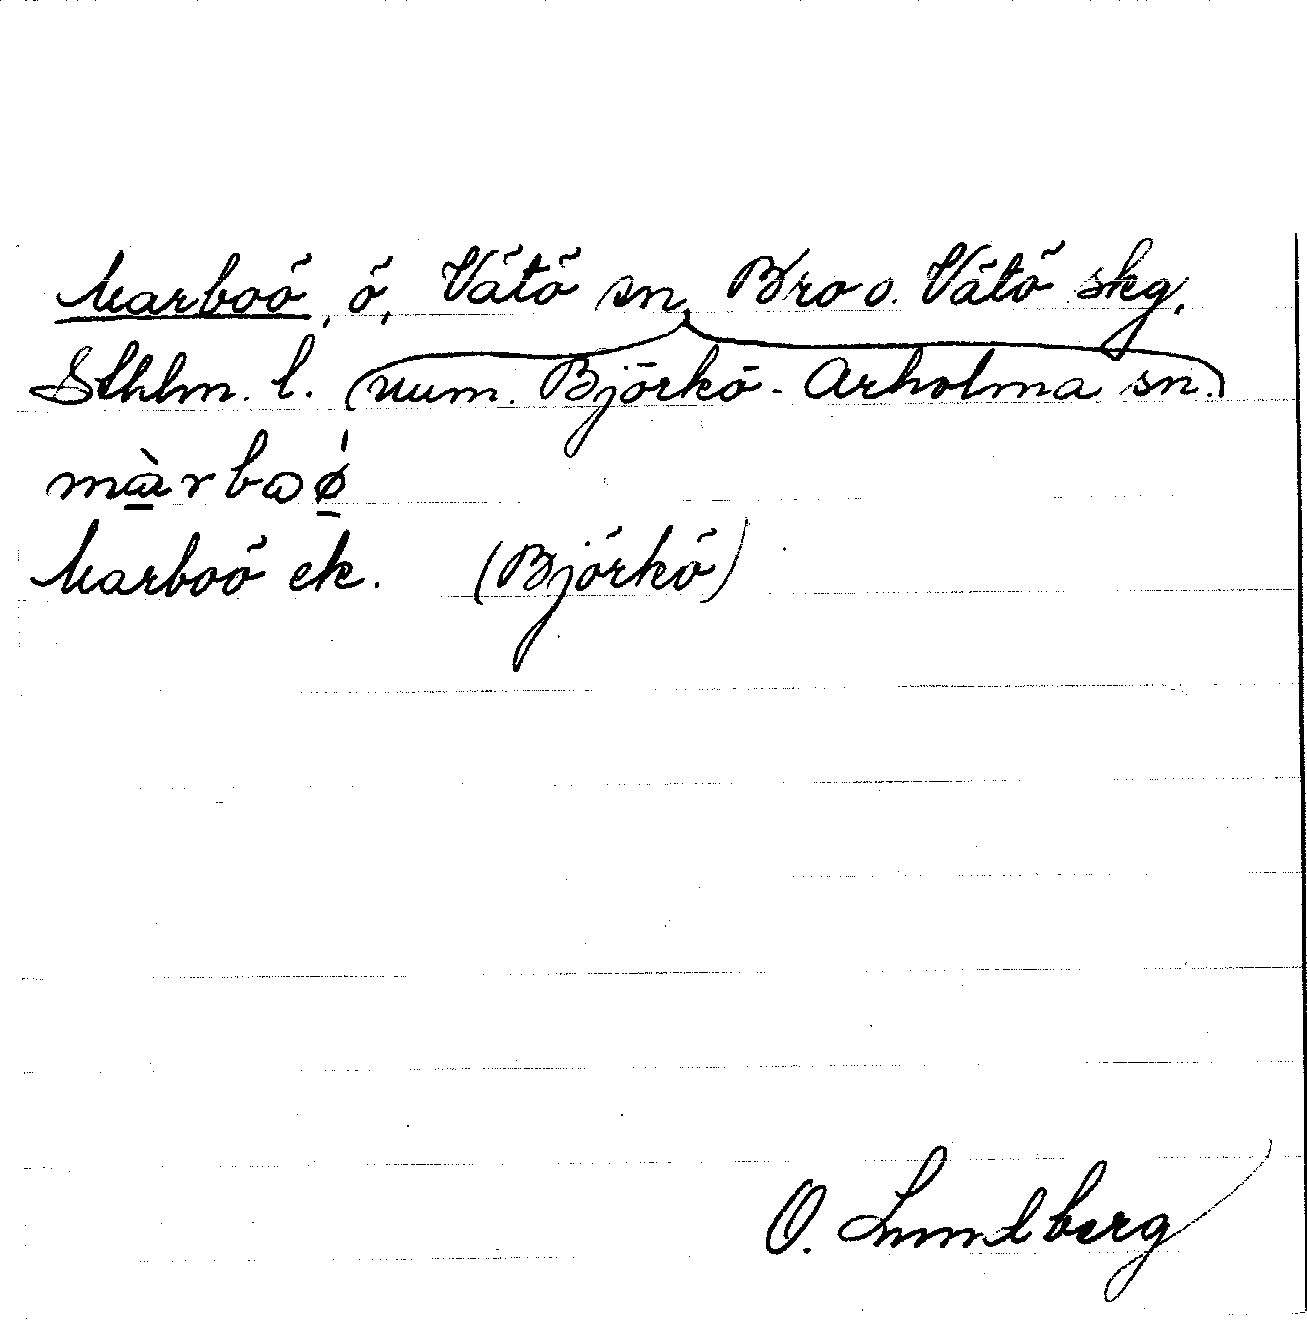 Marboö, ö, Vätö sn, Bro o. Vätö skg,
Sthlm. l. (num. Björkö-Arholma sn.)
màrbɷø̍
Marboö ek. (Björkö)
O. Lundberg